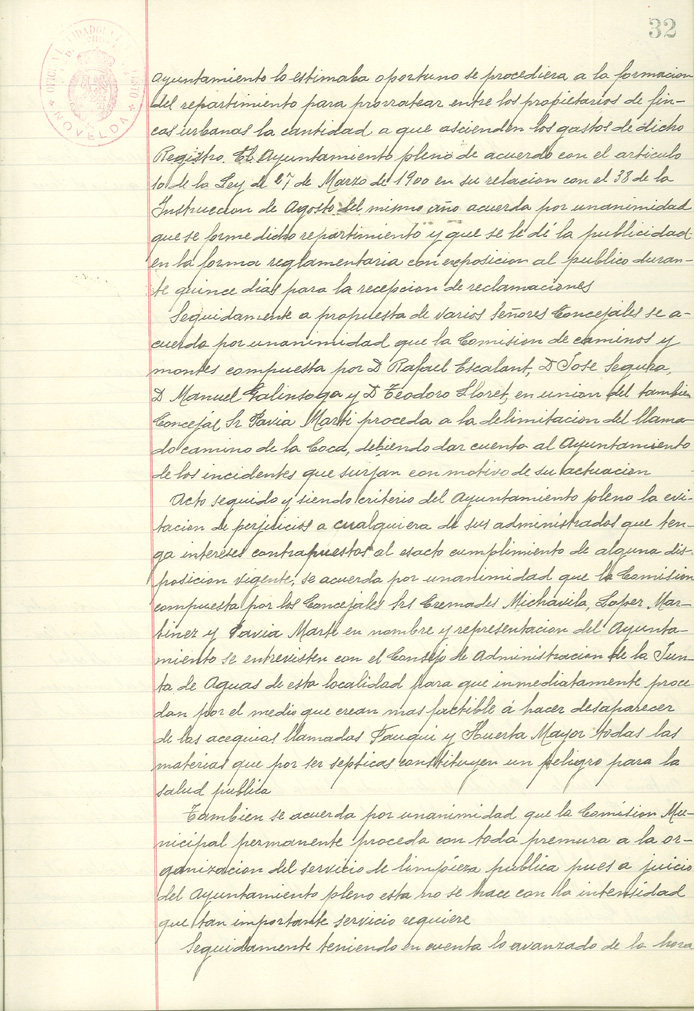 32
NOVELDA
ayuntamiento lo estimaba oportuno se procediera a la formacion
del repartimiento para prorratear entre los propietarios de fin-
cas urbanas la cantidad a que ascienden los gastos de dicho
Registro. El Ayuntamiento pleno de acuerdo con el articulo
10 de la Ley de 27 de Marzo de 1900 en su relacion con el 38 de la
Instruccion de Agosto del mismo año acuerda por unanimidad
que se forme dicho repartimiento y que se le dé la publicidad
en la forma reglamentaria con exposicion al publico duran-
te quince dias para la recepcion de reclamaciones
Seguidamente a propuesta de varios Señores Concejales se a-
cuerda por unanimidad que la Comision de caminos y
montes compuesta por D Rafael Escalant, D Jose Segura,
D Manuel Galinsoga y D Teodoro Lloret, en union del tambien
Concejal Sr Pavia Marti proceda a la delimitacion del llama-
do camino de la Coca, debiendo dar cuenta al Ayuntamiento
de los incidentes que surjan con motivo de su actuacion
Acto seguido y siendo criterio del Ayuntamiento pleno la evi-
tacion de perjuicios a cualquiera de sus administrados que ten-
ga intereses contrapuestos al esacto cumplimiento de alguna dis-
posicion vigente, se acuerda por unanimidad que la Comision
compuesta por los Concejales Srs Cremades Michavila, Lopez Mar-
tinez y Pavia Marti en nombre y representacion del Ayunta-
miento se entrevisten con el Consejo de Administracion de la Jun-
ta de Aguas de esta localidad para que inmediatamente proce
dan por el medio que crean mas factible á hacer desaparecer
de las acequias llamadas Fauqui y Huerta Mayor todas las
materias que por ser septicas constituyen un peligro para la
salud publica
Tambien se acuerda por unanimidad que la Comision Mu-
nicipal permanente proceda con toda premura a la or-
ganizacion del servicio de limpieza publica pues a juicio
del Ayuntamiento pleno esta no se hace con la intensidad
que tan importante servicio requiere
Seguidamente teniendo en cuenta lo avanzado de la hora